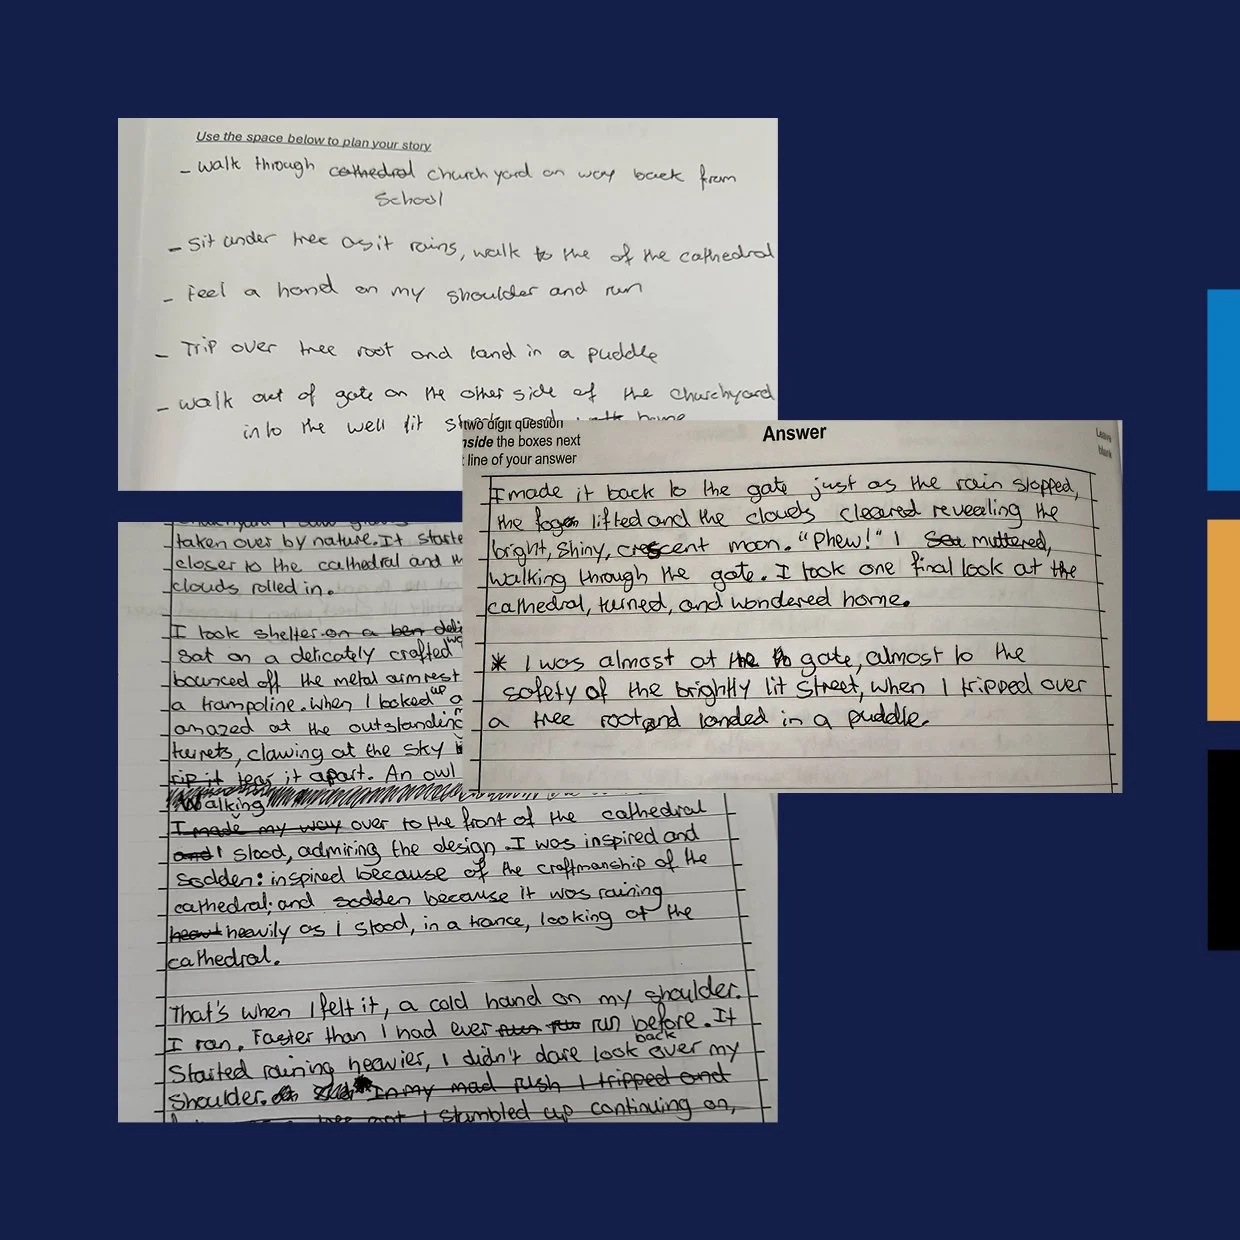 Use the space below to plan your story
- walk through cathedral churchyard on way back from
School
- Sit under tree as it rains, walk to the of the cathedral
- Feel a hand on my shoulder and run
- Trip over tree root and land in a puddle
- walk out of gate on the other side of the churchyard
into the well lit home
two digit question
nside the boxes next
line of your answer
Answer
Leave
blank
I made it back to the gate just as the rain stopped,
the fog lifted and the clouds cleared revealing the
bright, shiny, crescent moon. "Phew!" I muttered,
walking through the gate. I took one final look at the
cathedral, turned, and wondered home.
* I was almost at the gate, almost to the
safety of the brightly lit street, when I tripped over
a tree root and landed in a puddle.
taken over by nature. It starte
closer to the cathedral and th
clouds rolled in.
I took shelter on a
Sat on a delicately crafted
bounced off the metal armrest
a trampoline. When I looked up
amazed at the outstanding
turrets, clawing at the sky
rip it tear it apart. An owl
Walking
I made my way over to the front of the cathedral
and I stood, admiring the design. I was inspired and
Sodden: inspired because of the craftmanship of the
cathedral; and sodden because it was raining
heavily as I stood, in a trance, looking at the
cathedral.
That's when I felt it, a cold hand on my shoulder.
I ran. Faster than I had ever run before. It
Started raining heavier, I didn't dare look back over my
Shoulder. In my mad rush I tripped and
tree root I stumbled up continuing on,